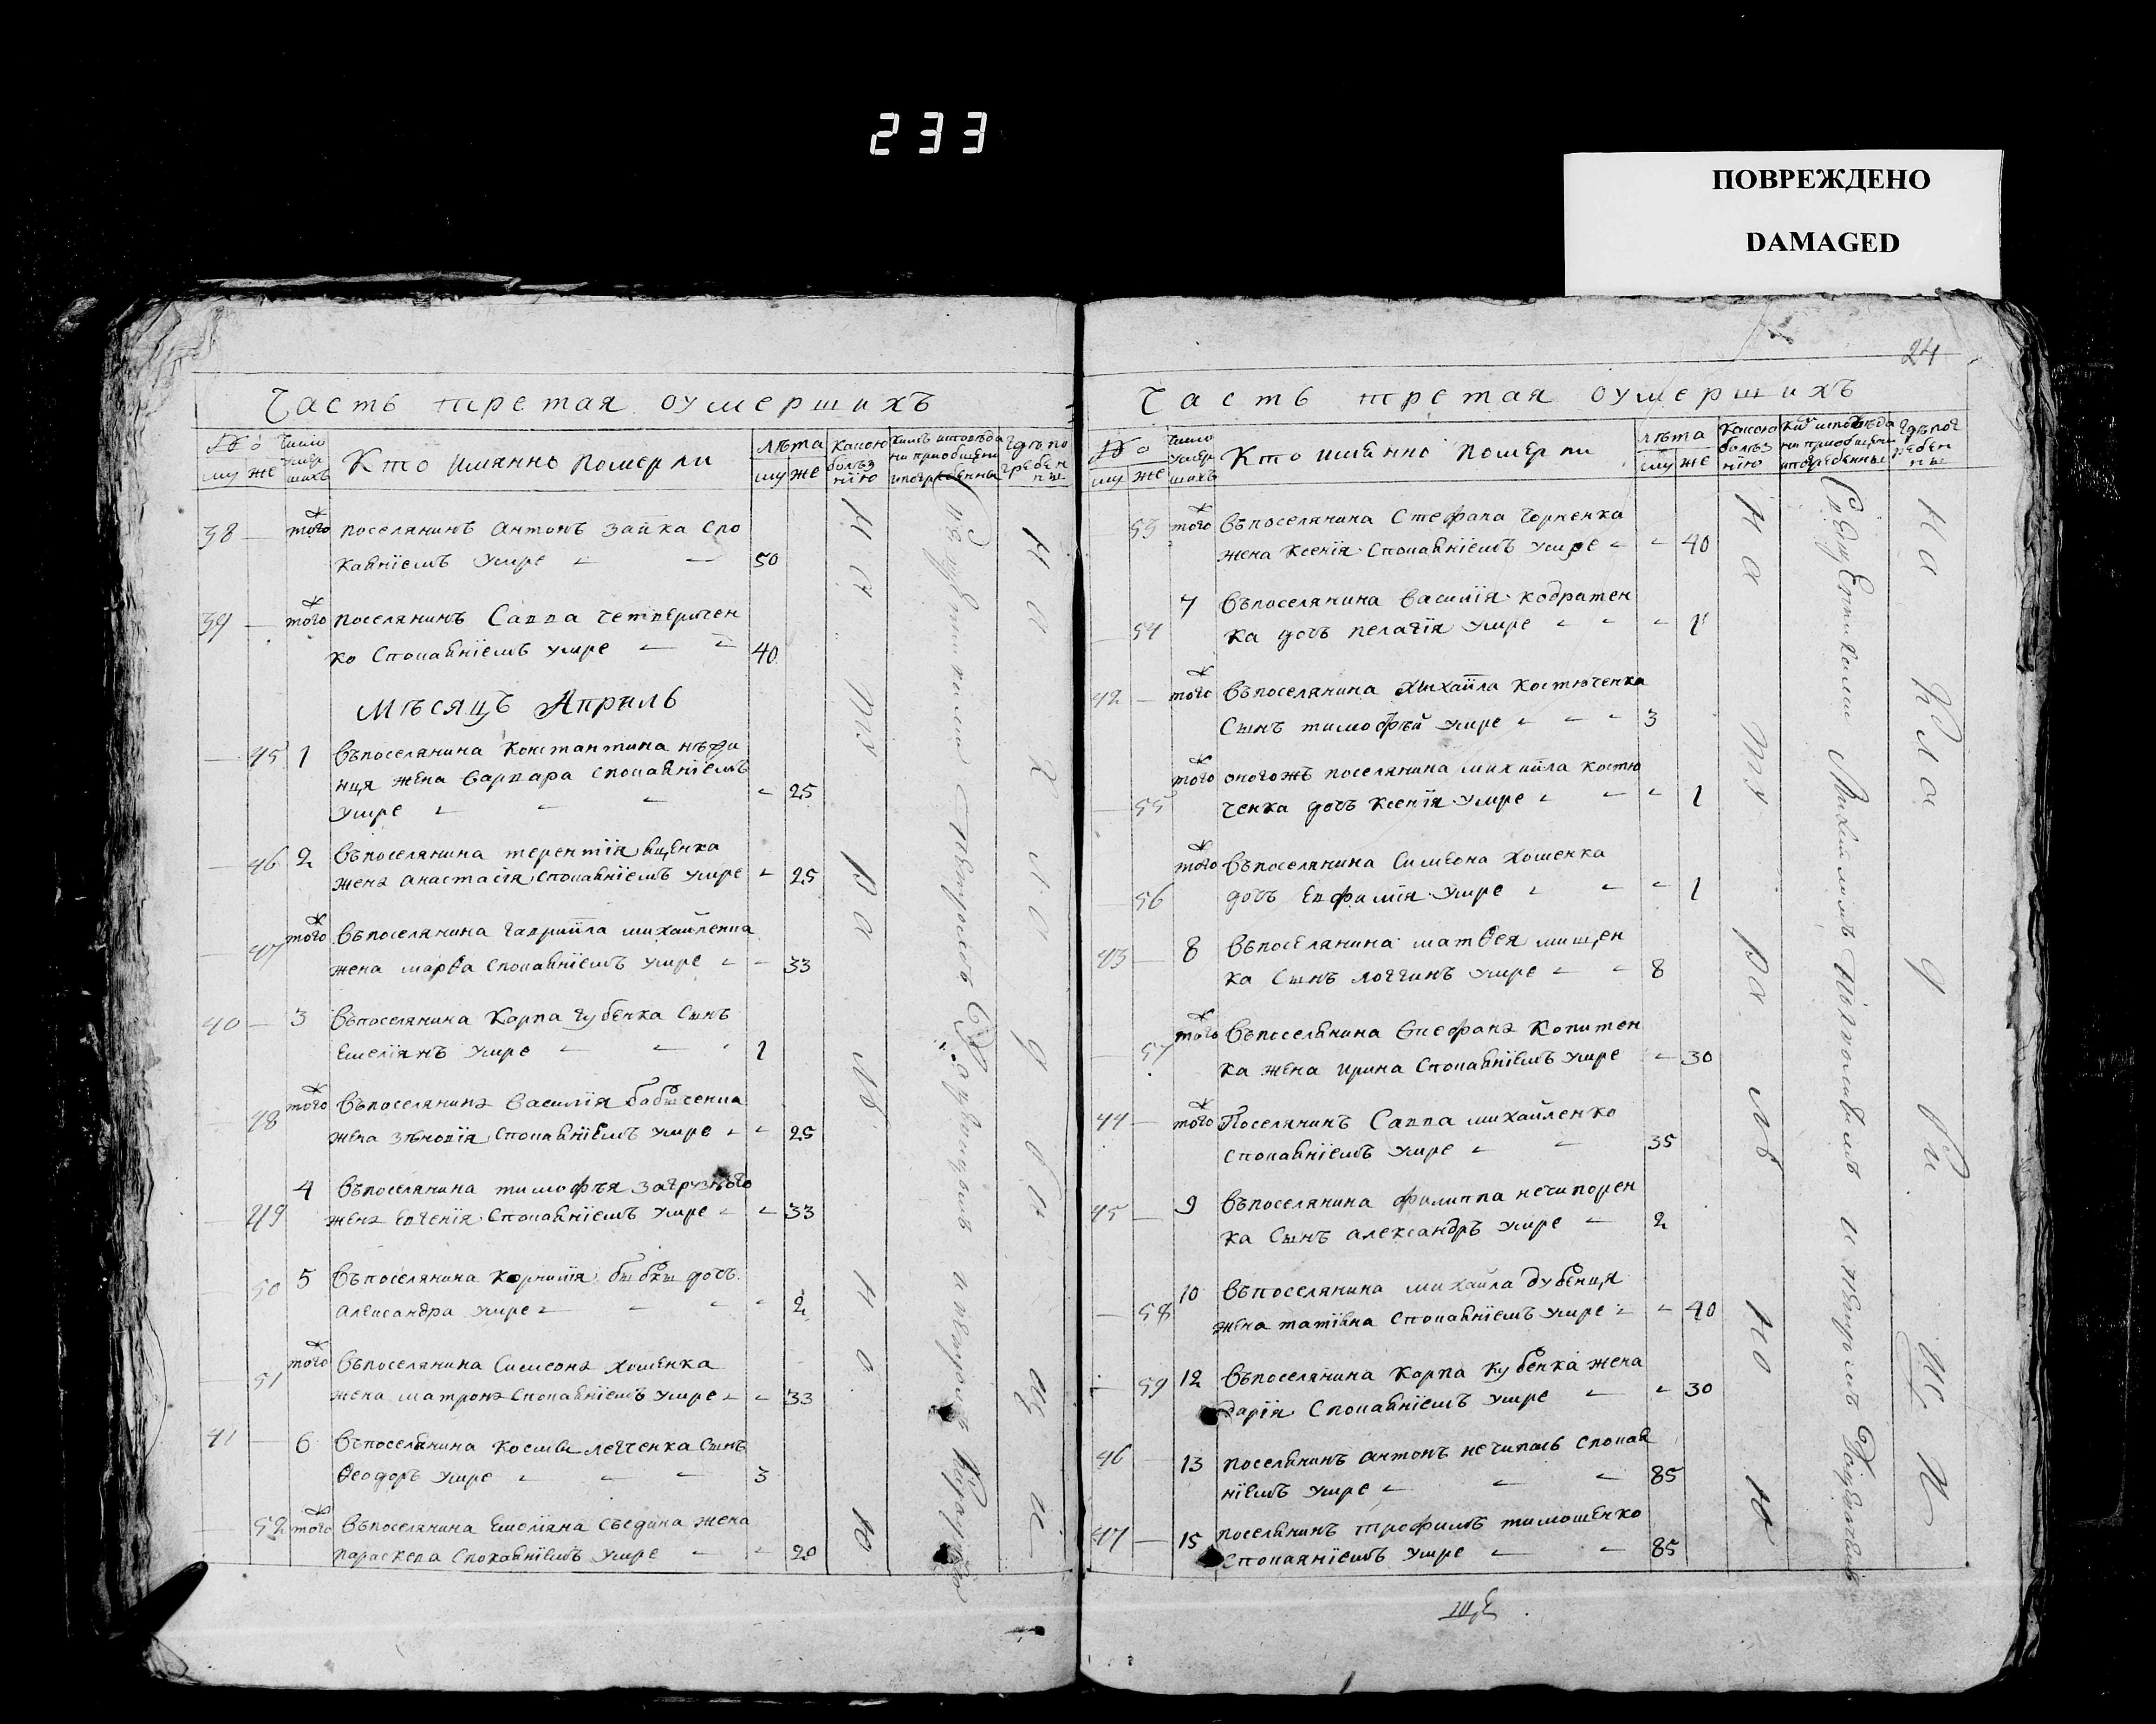 233
ПОВРЕЖДЕНО
DAMAGED
Часть третая оумершихъ
№ о
му же
число умер шихъ
Кто имянно померли
лѣта
му же
какою болѣз нїю
гдѣ по гребен ны
38 — тогож поселянинъ Антонъ Зайка Спо
каянїемъ умре 50
39 — тогож поселянинъ Савва четверычен
ко Спокаянїемъ умре 40
Мѣсяцъ Априль
— 45 1 Въпоселянина Константина
нця жена Варвара Спокаянїемъ
умре 25
— 46 2 Въпоселянина терентїя
жена анастасїя Спокаянїемъ умре 25
— 47 тогож Въпоселянина гаврїила михайленка
жена марѳа Спокаянїемъ умре 33
40 — 3 Въпоселянина Карпа губенка Сынъ
Емелїянъ умре 1
— 48 тогож Въпоселянина Василїя
жена зѣновїя Спокаянїемъ умре 25
— 49 4 Въпоселянина тимофѣя загрузного
жена Евгенїя Спокаянїемъ умре 33
— 50 5 Въпоселянина Корнилїя дочь
Александра умре 2
— 51 тогож Въпоселянина Симеона хоменка
жена матрона Спокаянїемъ умре 33
41 — 6 Въпоселянина Космы левченка Сынъ
Ѳеодоръ умре 3
— 52 тогож Въпоселянина Емелїяна Съедина жена
параскева Спокаянїемъ умре 20
На тур а л ь н о ю
На кла д б и щ и
24
Часть третая оумершихъ
№ о
му же
число умер шихъ
Кто имянно померли
лѣта
му же
какою болѣз нїю
ким исповѣда ни приобщени и погребенны
гдѣ пог ребен ны
— 53 тогож Въпоселянина Стефана Горпенка
жена Ксенїя Спокаянїемъ умре 40
— 54 7 Въпоселянина Василїя кодратен
ка дочь пелагїя умре 1
42 — тогож Въпоселянина Михайла Костюченка
Сынъ тимофѣй умре 3
— 55 тогож оногожъ поселянина михайла костю
ченка дочь Ксенїя умре 1
— 56 тогож Въпоселянина Симеона Хоменка
дочь Евфимїя умре 1
43 — 8 Въпоселянина матѳея мищен
ка Сынъ логгинъ умре 8
— 57 тогож Въпоселянина Стефана Копитен
ка жена ирина Спокаянїемъ умре 30
44 — тогож Поселянинъ Савва михайленко
Спокаянїемъ умре 35
45 — 9 Въпоселянина филиппа нечипорен
ка Сынъ александръ умре 2
— 58 10 Въпоселянина михайла дубенця
жена татїяна Спокаянїемъ умре 40
— 59 12 Въпоселянина Карпа кубенка жена
дарїя Спокаянїемъ умре 30
46 — 13 поселянинъ антонъ нечипась Спокая
нїемъ умре 85
47 — 15 поселянинъ трофимъ тимошенко
Спокаянїемъ умре 85
На ту ра ль но ю
На Кла д би ще и